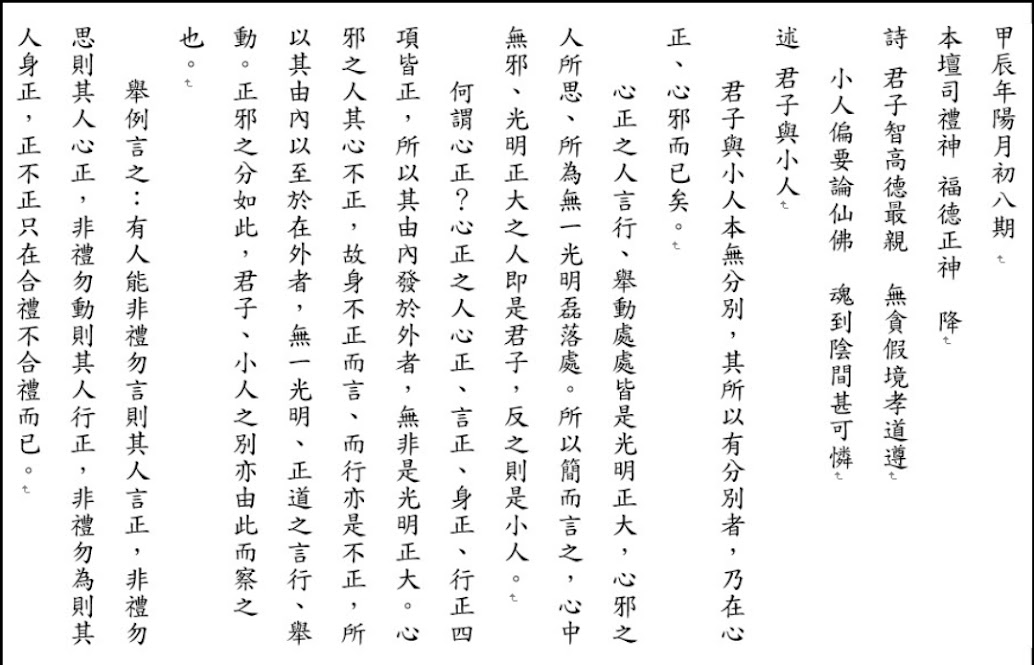 甲辰年陽月初八期
本壇司禮神　福德正神　降
詩　君子智高德最親　無貪假境孝道遵
小人偏要論仙佛　魂到陰間甚可憐
述　君子與小人
君子與小人本無分別，其所以有分別者，乃在心
正、心邪而已矣。
心正之人言行、舉動處處皆是光明正大，心邪之
人所思、所為無一光明磊落處。所以簡而言之，心中
無邪、光明正大之人即是君子，反之則是小人。
何謂心正？心正之人心正、言正、身正、行正四
項皆正，所以其由內發於外者，無非是光明正大。心
邪之人其心不正，故身不正而言、而行亦是不正，所
以其由內以至於在外者，無一光明、正道之言行、舉
動。正邪之分如此，君子、小人之別亦由此而察之
也。
舉例言之：有人能非禮勿言則其人言正，非禮勿
思則其人心正，非禮勿動則其人行正，非禮勿為則其
人身正，正不正只在合禮不合禮而已。